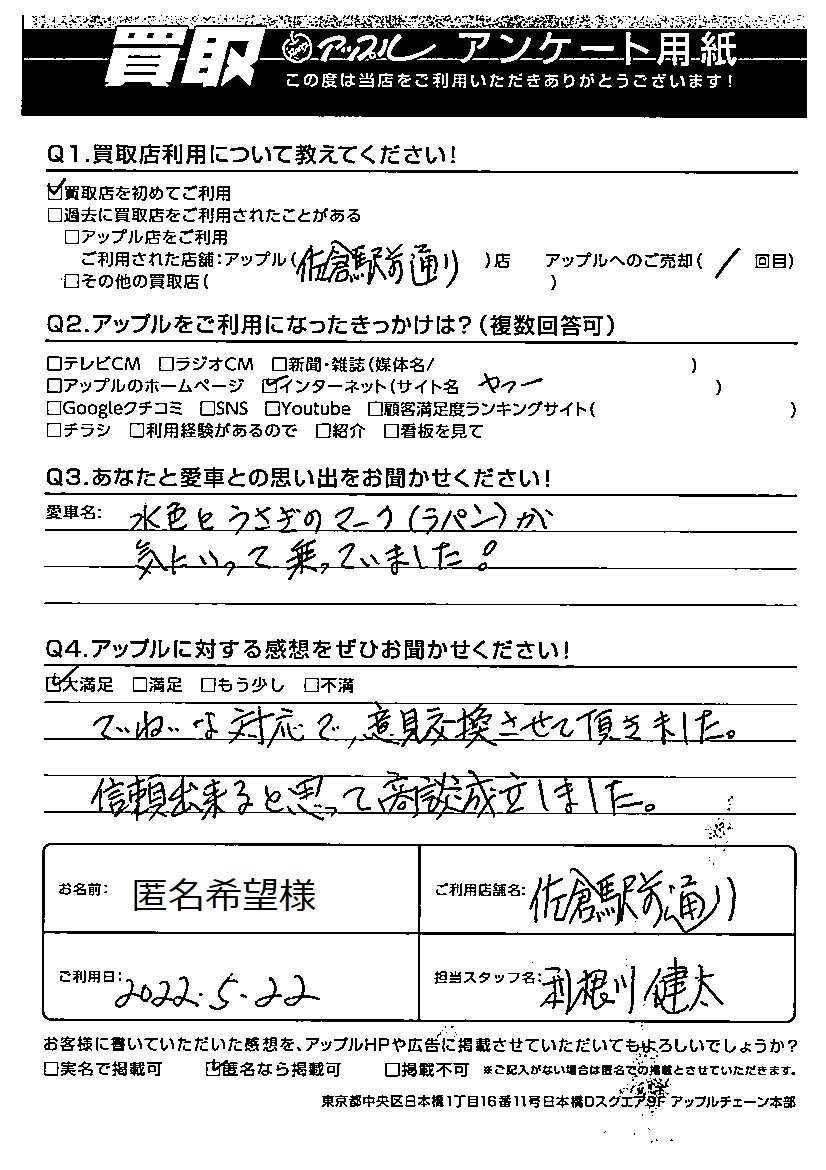 買取 アップル アンケート用紙
この度は当店をご利用いただきありがとうございます!
Q1.買取店利用について教えてください!
☑買取店を初めてご利用
□過去に買取店をご利用されたことがある
□アップル店をご利用
ご利用された店舗:アップル(佐倉駅前通り)店 アップルへのご売却(1回目)
□その他の買取店( )
Q2.アップルをご利用になったきっかけは?(複数回答可)
□テレビCM □ラジオCM □新聞・雑誌(媒体名/ )
□アップルのホームページ ☑インターネット(サイト名 ヤフー )
□Googleクチコミ □SNS □Youtube □顧客満足度ランキングサイト( )
□チラシ □利用経験があるので □紹介 □看板を見て
Q3.あなたと愛車との思い出をお聞かせください!
愛車名: 水色とうさぎのマーク(ラパン)が
気にいって乗っていました!
Q4.アップルに対する感想をぜひお聞かせください!
☑大満足 □満足 □もう少し □不満
ていねいな対応で、意見交換させて頂きました。
信頼出来ると思って商談成立しました。
お名前: 匿名希望様 ご利用店舗名: 佐倉駅前通り
ご利用日: 2022.5.22 担当スタッフ名: 利根川 健太
お客様に書いていただいた感想を、アップルHPや広告に掲載させていただいてもよろしいでしょうか?
□実名で掲載可 ☑匿名なら掲載可 □掲載不可 ※ご記入がない場合は匿名での掲載とさせていただきます。
東京都中央区日本橋1丁目16番11号日本橋Dスクエア9F アップルチェーン本部